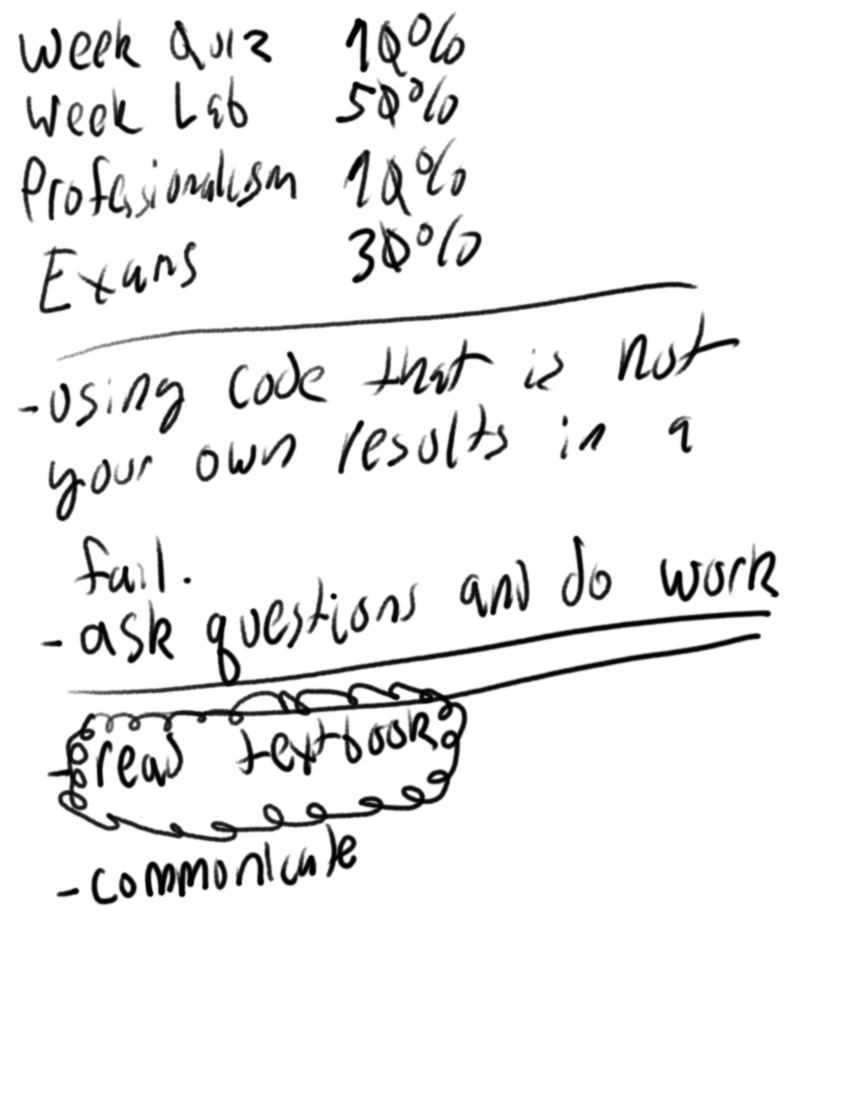 Week Quiz 10%
Week Lab 50%
Professionalism 10%
Exams 30%
-using code that is not
your own results in a
fail.
-ask questions and do work
-read textbook
-communicate